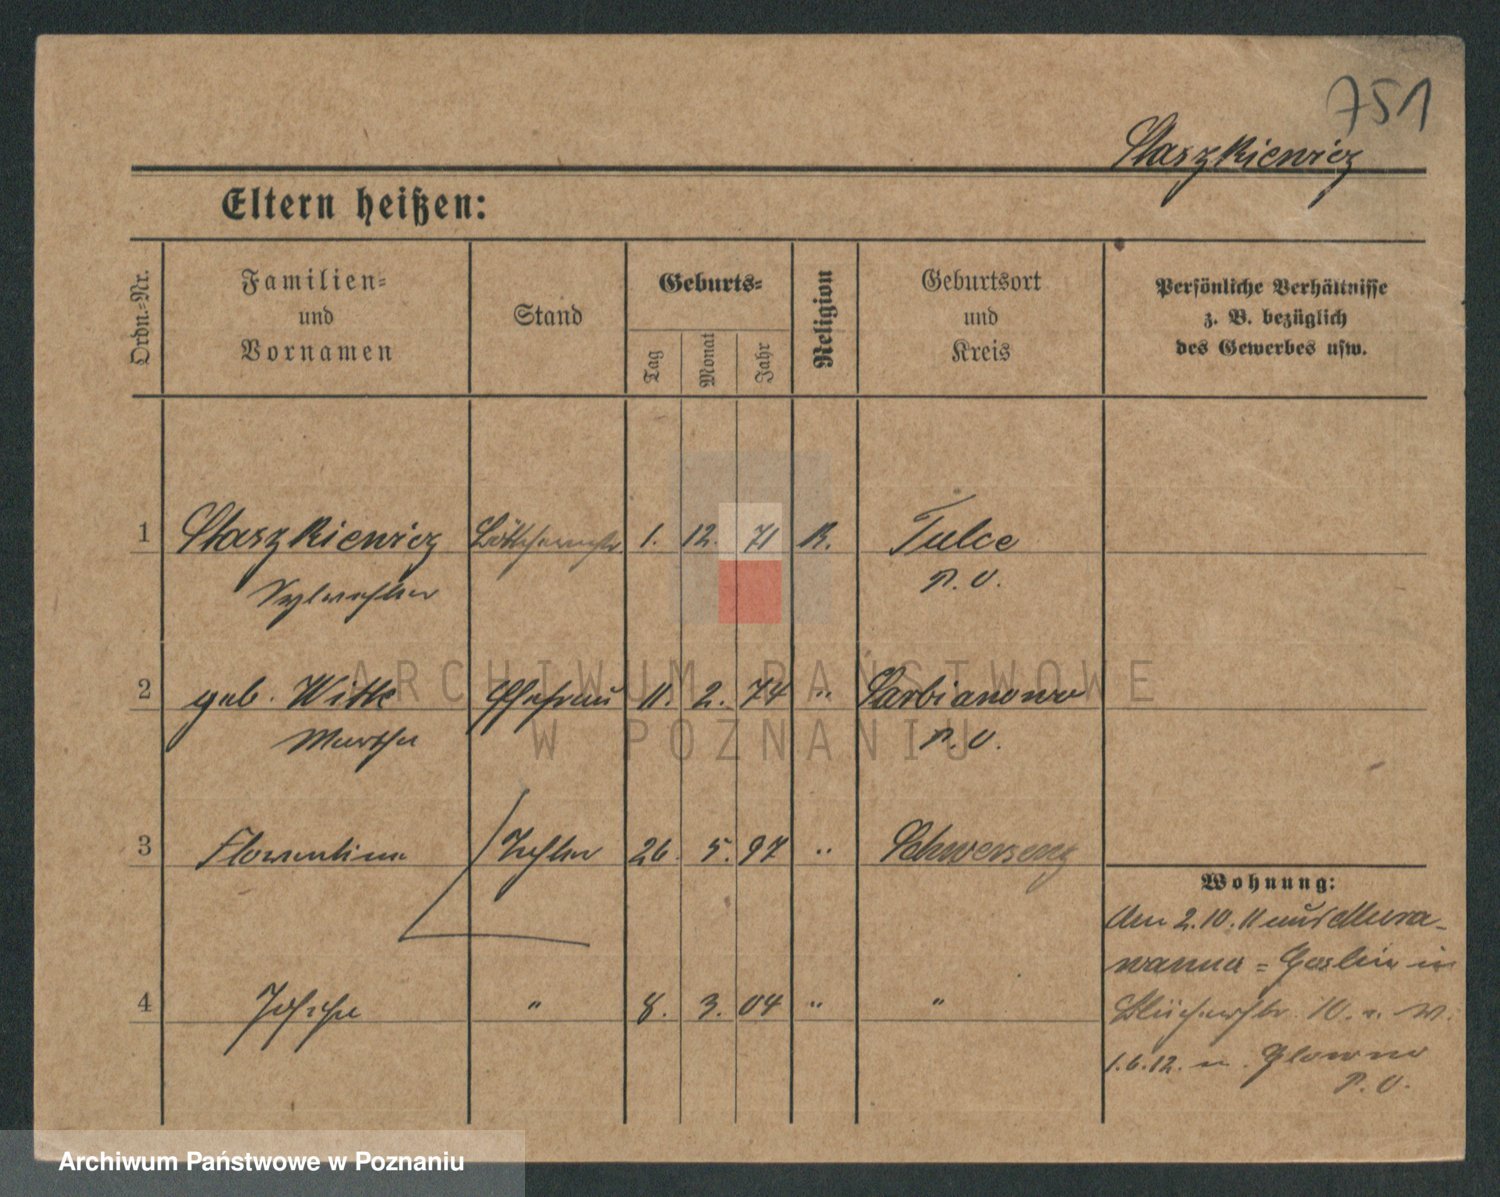 751
Staszkiewicz
Eltern heißen:
Ordn.-Nr.
Familien-
und
Vornamen
Stand
Geburts-
Tag
Monat
Jahr
Religion
Geburtsort
und
Kreis
Persönliche Verhältnisse
z. B. bezüglich
des Gewerbes usw.
1 Staszkiewicz 1. 12. 71 K. Tulce
Sylvester P. O.
2 geb. Witte Ehefrau 11. 2. 74 " Sarbianowo
Martha P. O.
3 Florentine Tochter 26. 5. 97 " Schwersenz
Wohnung:
Am 2.10.11 aus Mura-
wanna-Goslin in
4 " 8. 3. 04 " "
Blücherstr. 10. u. W.
1.6.12. n. Glowno
P. O.
ARCHIWUM PAŃSTWOWE
W POZNANIU
Archiwum Państwowe w Poznaniu